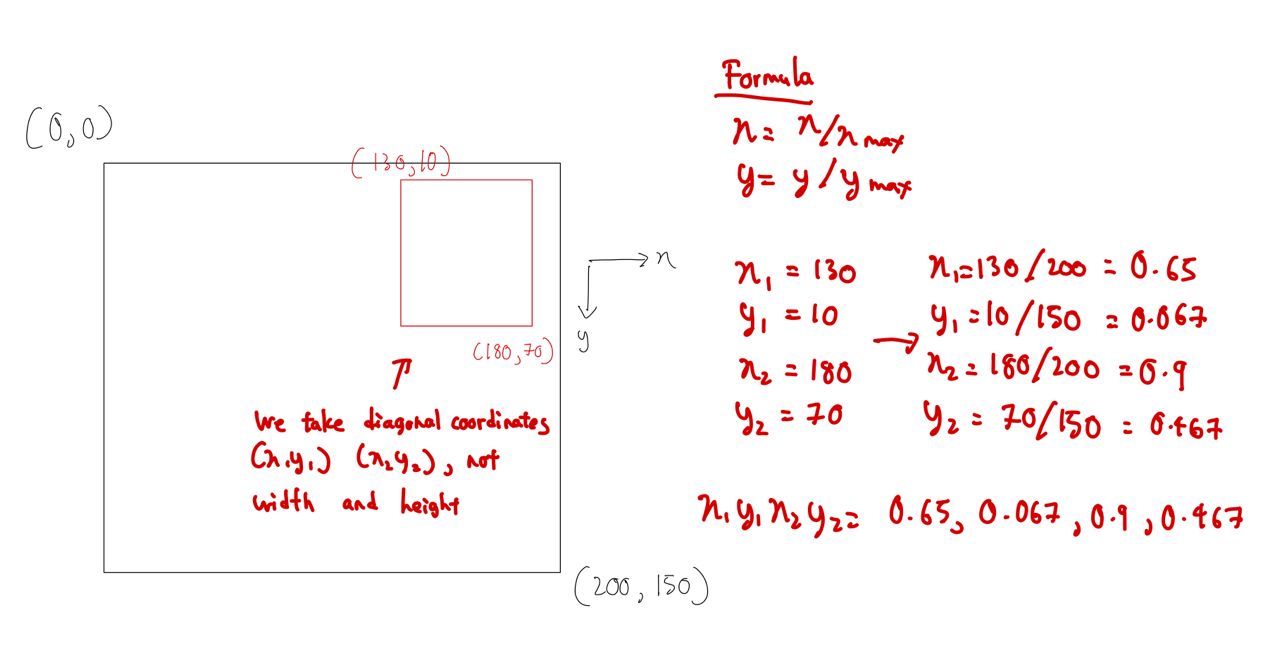 (0,0)
(130,10)
x
y
(180,70)
We take diagonal coordinates
(x1y1) (x2y2), not
width and height
(200, 150)
Formula
x = x/xmax
y = y/ymax
x1 = 130
y1 = 10
x2 = 180
y2 = 70
x1=130/200 = 0.65
y1=10/150 = 0.067
x2=180/200 =0.9
y2 = 70/150 = 0.467
x1y1x2y2= 0.65, 0.067, 0.9, 0.467